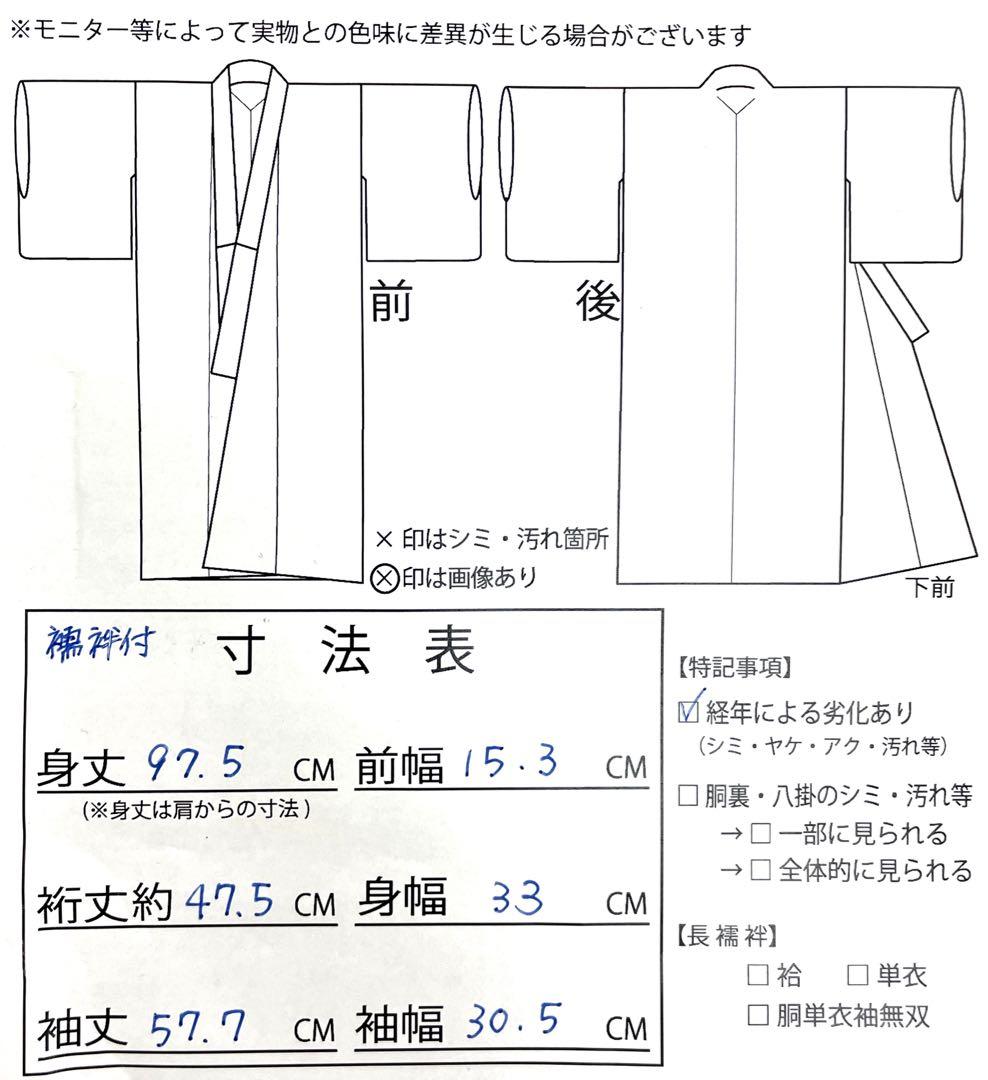 ※モニター等によって実物との色味に差異が生じる場合がございます
前
後
×印はシミ・汚れ箇所
Ⓧ印は画像あり
下前
襦袢付 寸法表
身丈 97.5 CM 前幅 15.3 CM
(※身丈は肩からの寸法)
裄丈約 47.5 CM 身幅 33 CM
袖丈 57.7 CM 袖幅 30.5 CM
【特記事項】
☑ 経年による劣化あり
(シミ・ヤケ・アク・汚れ等)
□ 胴裏・八掛のシミ・汚れ等
→ □ 一部に見られる
→ □ 全体的に見られる
【長襦袢】
□ 袷 □ 単衣
□ 胴単衣袖無双